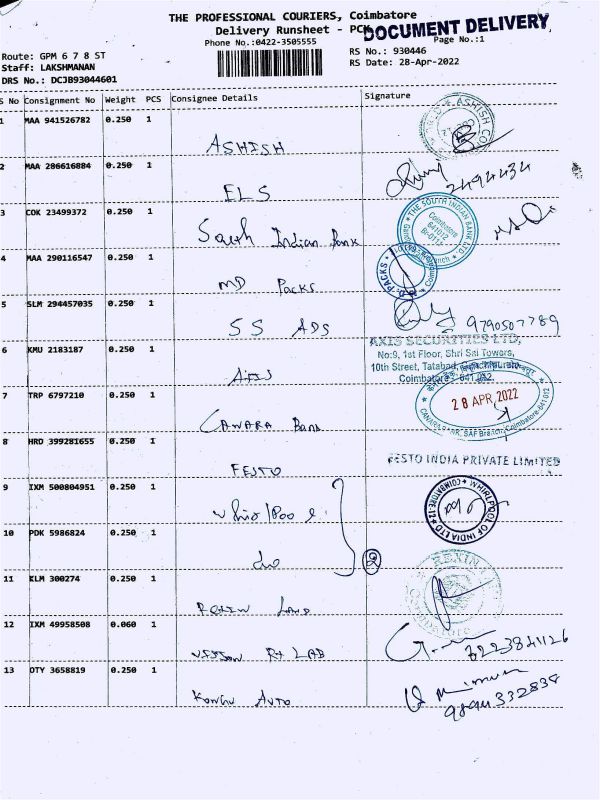 THE PROFESSIONAL COURIERS, Coimbatore
Delivery Runsheet - PCN
DOCUMENT DELIVERY
Phone No.:0422-3505555
Page No.:1
Route: GPM 6 7 8 ST
RS No.: 930446
Staff: LAKSHMANAN
RS Date: 28-Apr-2022
DRS No.: DCJB93044601
S No Consignment No Weight PCS Consignee Details Signature
1 MAA 941526782 0.250 1
ASHISH
2 MAA 286616884 0.250 1
ELS
2494434
3 COK 23499372 0.250 1
South Indian Bank
THE SOUTH INDIAN BANK LTD.
Coimbatore
641012
4 MAA 290116547 0.250 1
MD Packs
PACKS
5 SLM 294457035 0.250 1
SS ADS
9790507789
6 KMU 2183187 0.250 1
AXIS
AXIS SECURITIES LTD,
No:9, 1st Floor, Shri Sai Towers,
10th Street, Tatabad,
Coimbatore - 641 012.
7 TRP 6797210 0.250 1
Canara Bank
28 APR 2022
8 HRD 399281655 0.250 1
FESTO
FESTO INDIA PRIVATE LIMITED
9 IXM 500804951 0.250 1
Whirlpool
WHIRLPOOL OF INDIA LTD
COIMBATORE-12
10 PDK 5986824 0.250 1
do
2
11 KLM 300274 0.250 1
Rexin Land
12 IXM 49958508 0.060 1
Vision Rx LAB
7223841126
13 OTY 3658819 0.250 1
Kongu Auto